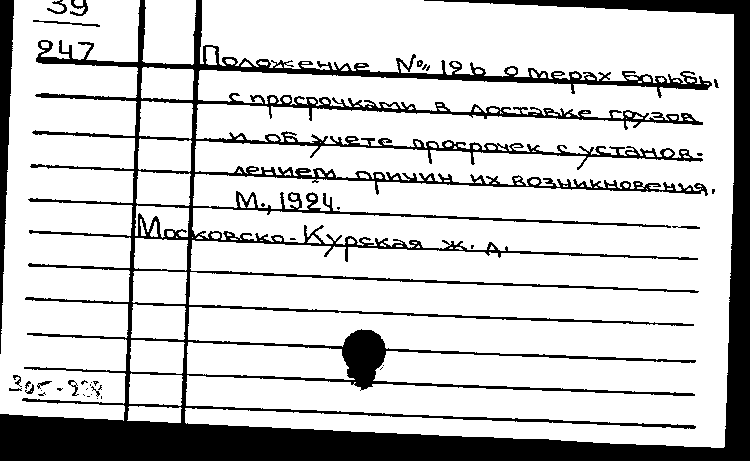 39
247
Положение № 12в о мерах борьбы
с просрочками в доставке грузов
и об учете просрочек с установ-
лением причин их возникновения.
М., 1924.
Московско-Курская ж. д.
305-